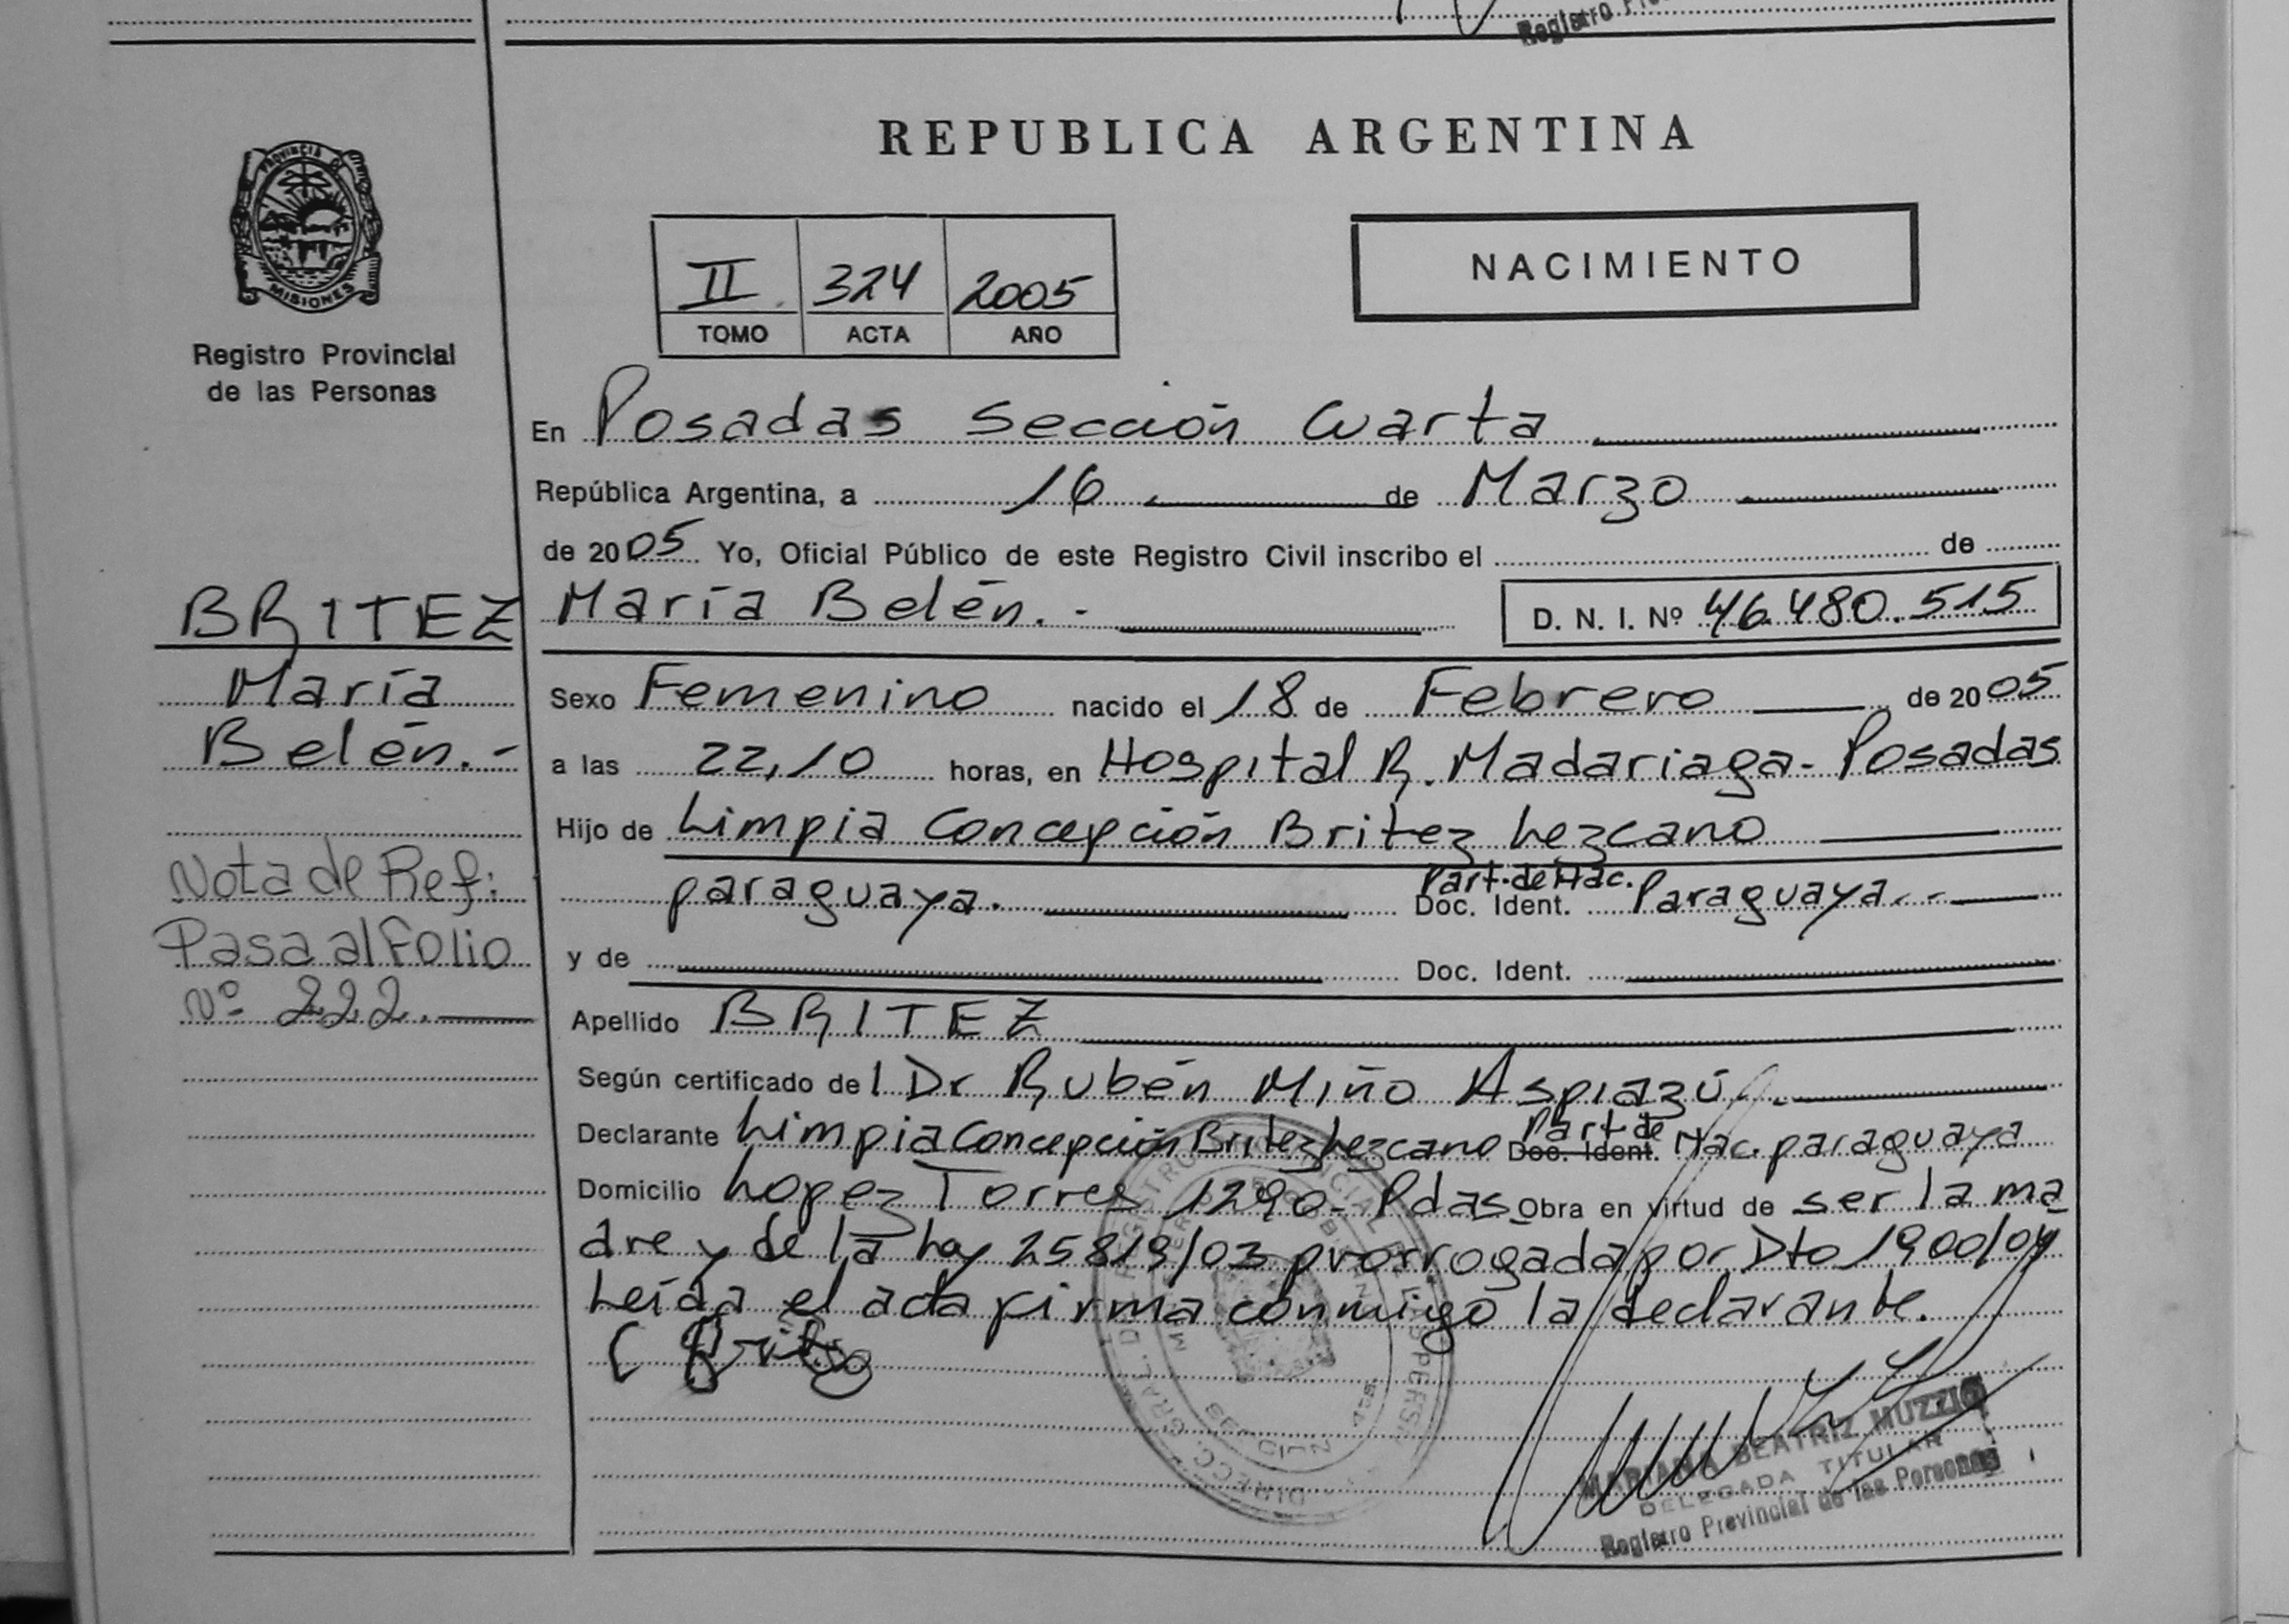 Registro
REPUBLICA ARGENTINA
PROVINCIA D
MISIONES
Registro Provincial
de las Personas
II 324 2005
TOMO ACTA AÑO
NACIMIENTO
En Posadas Sección Cuarta
República Argentina, a 16 de Marzo
de 2005 Yo, Oficial Público de este Registro Civil inscribo el de
BRITEZ
María
Belén.-
Nota de Ref:
Pasa al Folio
Nº 222.
María Belén.-
D. N. I. Nº 46.480.515
Sexo Femenino nacido el 18 de Febrero de 2005
a las 22,10 horas, en Hospital R. Madariaga - Posadas
Hijo de Limpia Concepción Britez Lezcano
paraguaya. Part. de Nac. Doc. Ident. Paraguaya.-
y de Doc. Ident.
Apellido BRITEZ
Según certificado del Dr Rubén Miño Aspiazú.
Declarante Limpia Concepción Britez Lezcano Part. de Doc. Ident. Nac. paraguaya
Domicilio Lopez Torres 1290- Pdas Obra en virtud de ser la ma
dre y de la Ley 25819/03 prorrogada por Dto 1900/04
Leída el acta firma conmigo la declarante.
C Britez
MARIANA BEATRIZ MUZZIO
DELEGADA TITULAR
Registro Provincial de las Personas